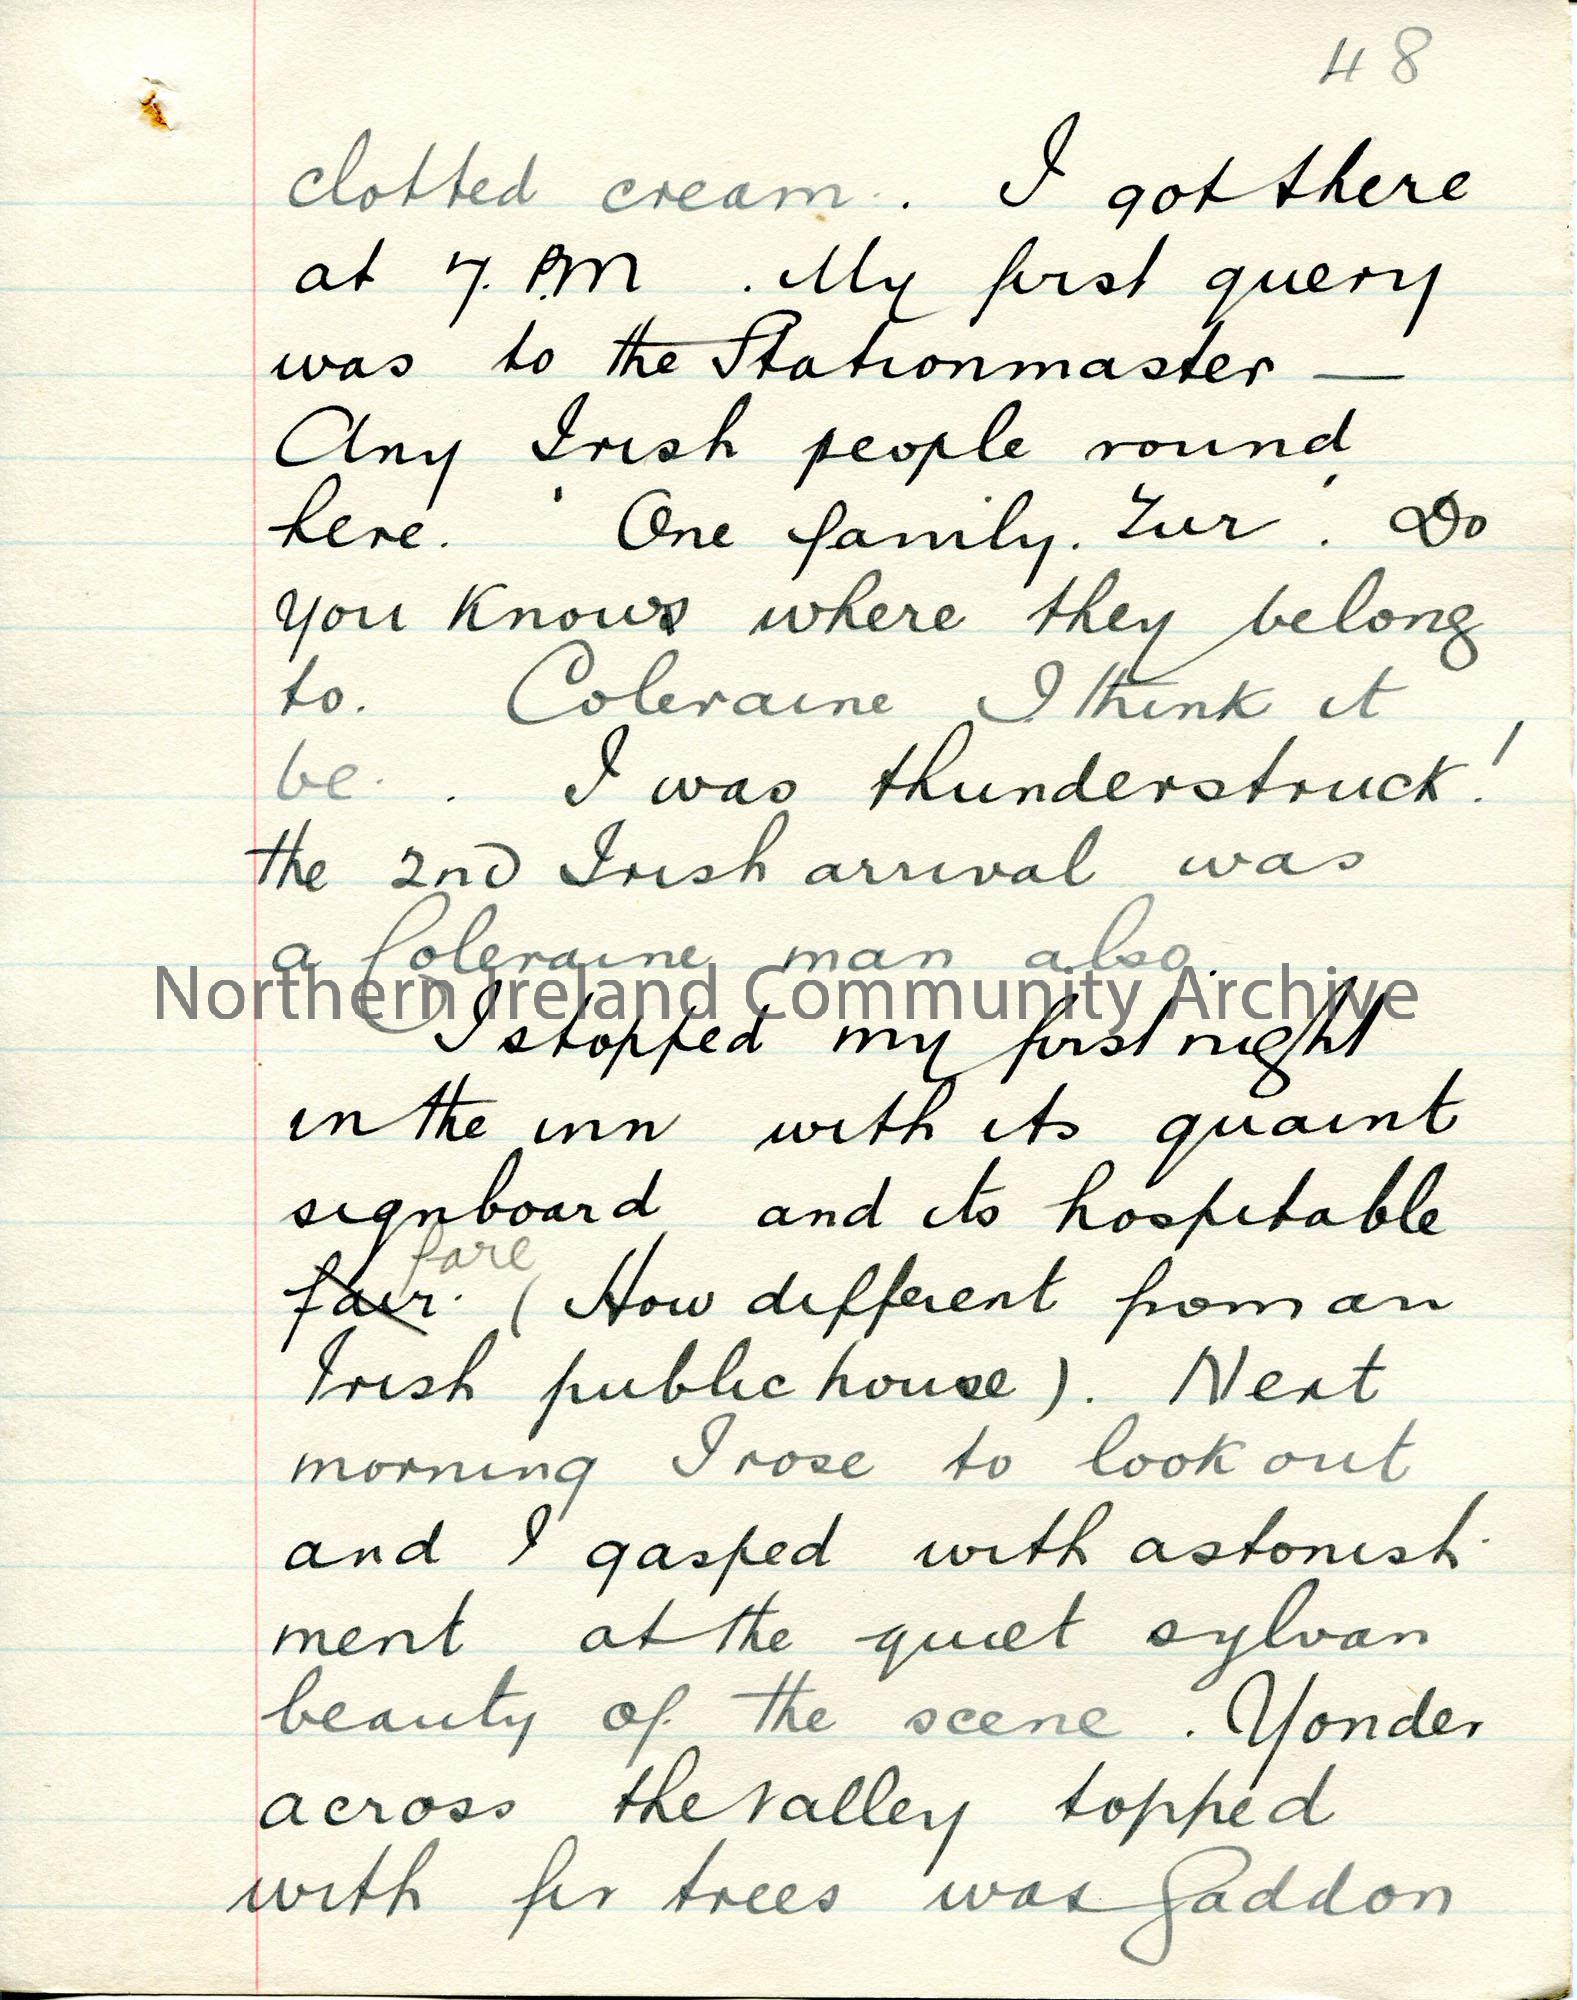 48
clotted cream. . I got there
at 7. P.M . My first query
was to the Stationmaster —
Any Irish people round
here. ' One family. Zur ' . Do
you know where they belong
to. Coleraine I think it
be. . I was thunderstruck!
the 2nd Irish arrival was
a Coleraine man also.
Northern Ireland Community Archive
I stopped my first night
in the inn with its quaint
signboard and its hospitable
fare
fair. (How different from an
Irish public house). Next
morning I rose to look out
and I gasped with astonish-
ment at the quiet sylvan
beauty of the scene . Yonder
across the valley topped
with fir trees was Gaddon